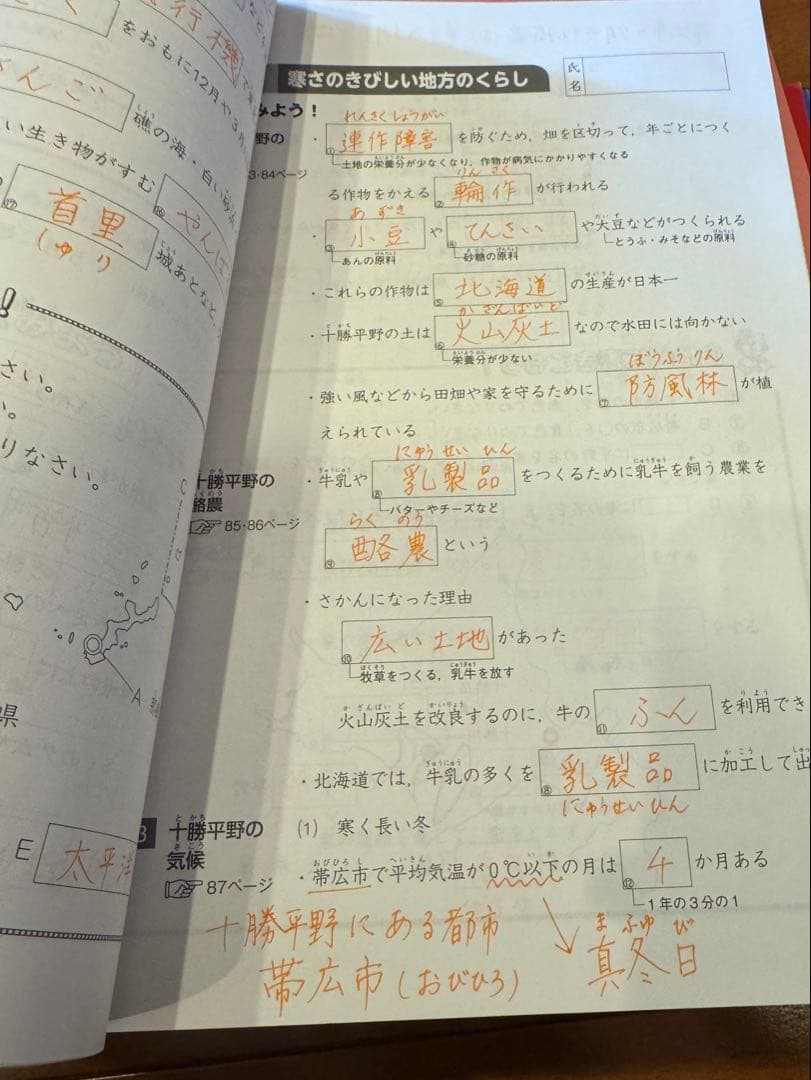 行機
をおもに12月や3月
んご
礁の海・白い
い生き物がすむ
⑰ 首里
しゅり
⑱ やんば
城あとなど
!
さい。
い。
りなさい。
C
D
A
県
E 太平洋
寒さのきびしい地方のくらし
氏名
みよう！
平野の
3・84ページ
れんさくしょうがい
・① 連作障害 を防ぐため，畑を区切って，年ごとにつく
土地の栄養分が少なくなり、作物が病気にかかりやすくなる
りんさく
る作物をかえる ② 輪作 が行われる
あずき
・③ 小豆 や ④ てんさい や大豆などがつくられる
あんの原料
砂糖の原料
とうふ・みそなどの原料
・これらの作物は ⑤ 北海道 の生産が日本一
かざんばいど
・十勝平野の土は ⑥ 火山灰土 なので水田には向かない
栄養分が少ない
ぼうふうりん
・強い風などから田畑や家を守るために ⑦ 防風林 が植
えられている
十勝平野の
酪農
85・86ページ
にゅうせいひん
・牛乳や ⑧ 乳製品 をつくるために乳牛を飼う農業を
バターやチーズなど
らくのう
⑨ 酪農 という
・さかんになった理由
⑩ 広い土地 があった
牧草をつくる，乳牛を放す
火山灰土を改良するのに，牛の ⑪ ふん を利用でき
・北海道では，牛乳の多くを ⑧ 乳製品 に加工して出
にゅうせいひん
3 十勝平野の
気候
87ページ
(1) 寒く長い冬
・帯広市で平均気温が0℃以下の月は ⑫ 4 か月ある
1年の3分の1
十勝平野にある都市
帯広市(おびひろ)
まふゆび
真冬日